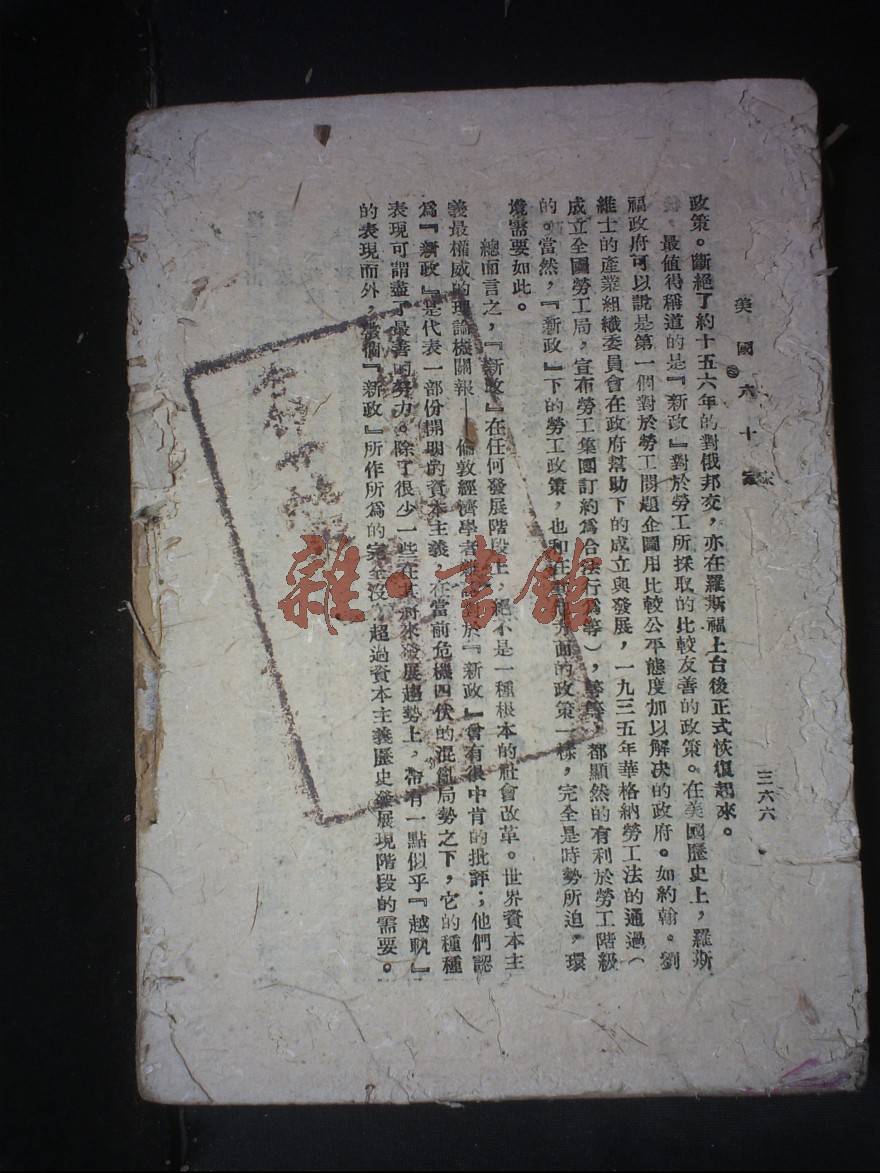 美國六十家
三六六
政策。斷絕了約十五六年的對俄邦交，亦在羅斯福上台後正式恢復起來。
最值得稱道的是『新政』對於勞工所採取的比較友善的政策。在美國歷史上，羅斯
福政府可以說是第一個對於勞工問題企圖用比較公平態度加以解決的政府。如約翰。劉
維士的產業組織委員會在政府幫助下的成立與發展，一九三五年華格納勞工法的通過（
成立全國勞工局，宣布勞工集團訂約為合法行為等），等等，都顯然的有利於勞工階級
的。當然，『新政』下的勞工政策，也和在方面的政策一樣，完全是時勢所迫，環
境需要如此。
總而言之，『新政』在任何發展階段上，絕不是一種根本的社會改革。世界資本主
義最權威的理論機關報——倫敦經濟學者於『新政』曾有很中肯的批評；他們認
為『新政』是代表一部份開明的資本主義，在當前危機四伏的混亂局勢之下，它的種種
表現可謂盡了最善的努力。除了很少一些在其將來發展趨勢上，帶有一點似乎『越軌』
的表現而外，整個『新政』所作所為的完全沒超過資本主義歷史發展現階段的需要。
雜·書館